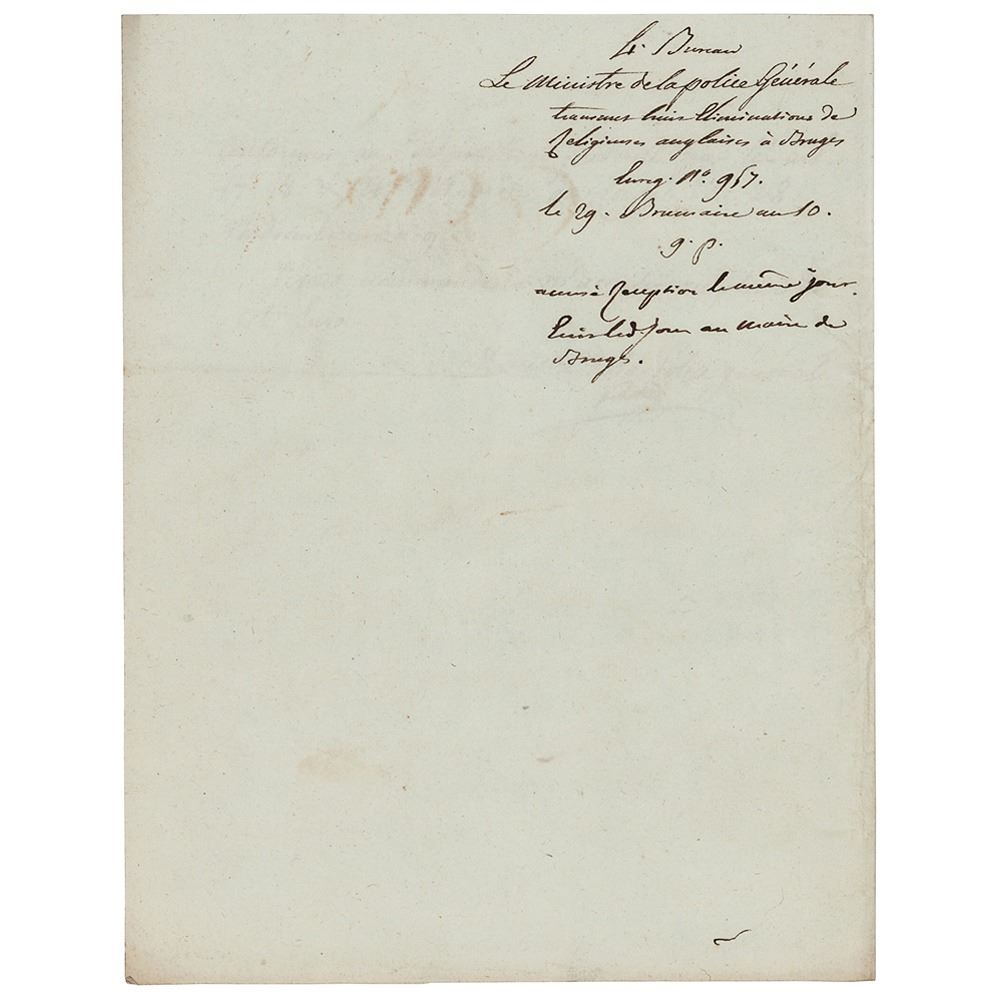 Bureau
Le Ministre de la police Générale
transmet huit Eliminations de
Religieuses anglaises à Bruges
Enreg. N.º 957.
le 29. Brumaire an 10.
g. p.
accusé Reception le même jour.
led. jour au maire de
Bruges.